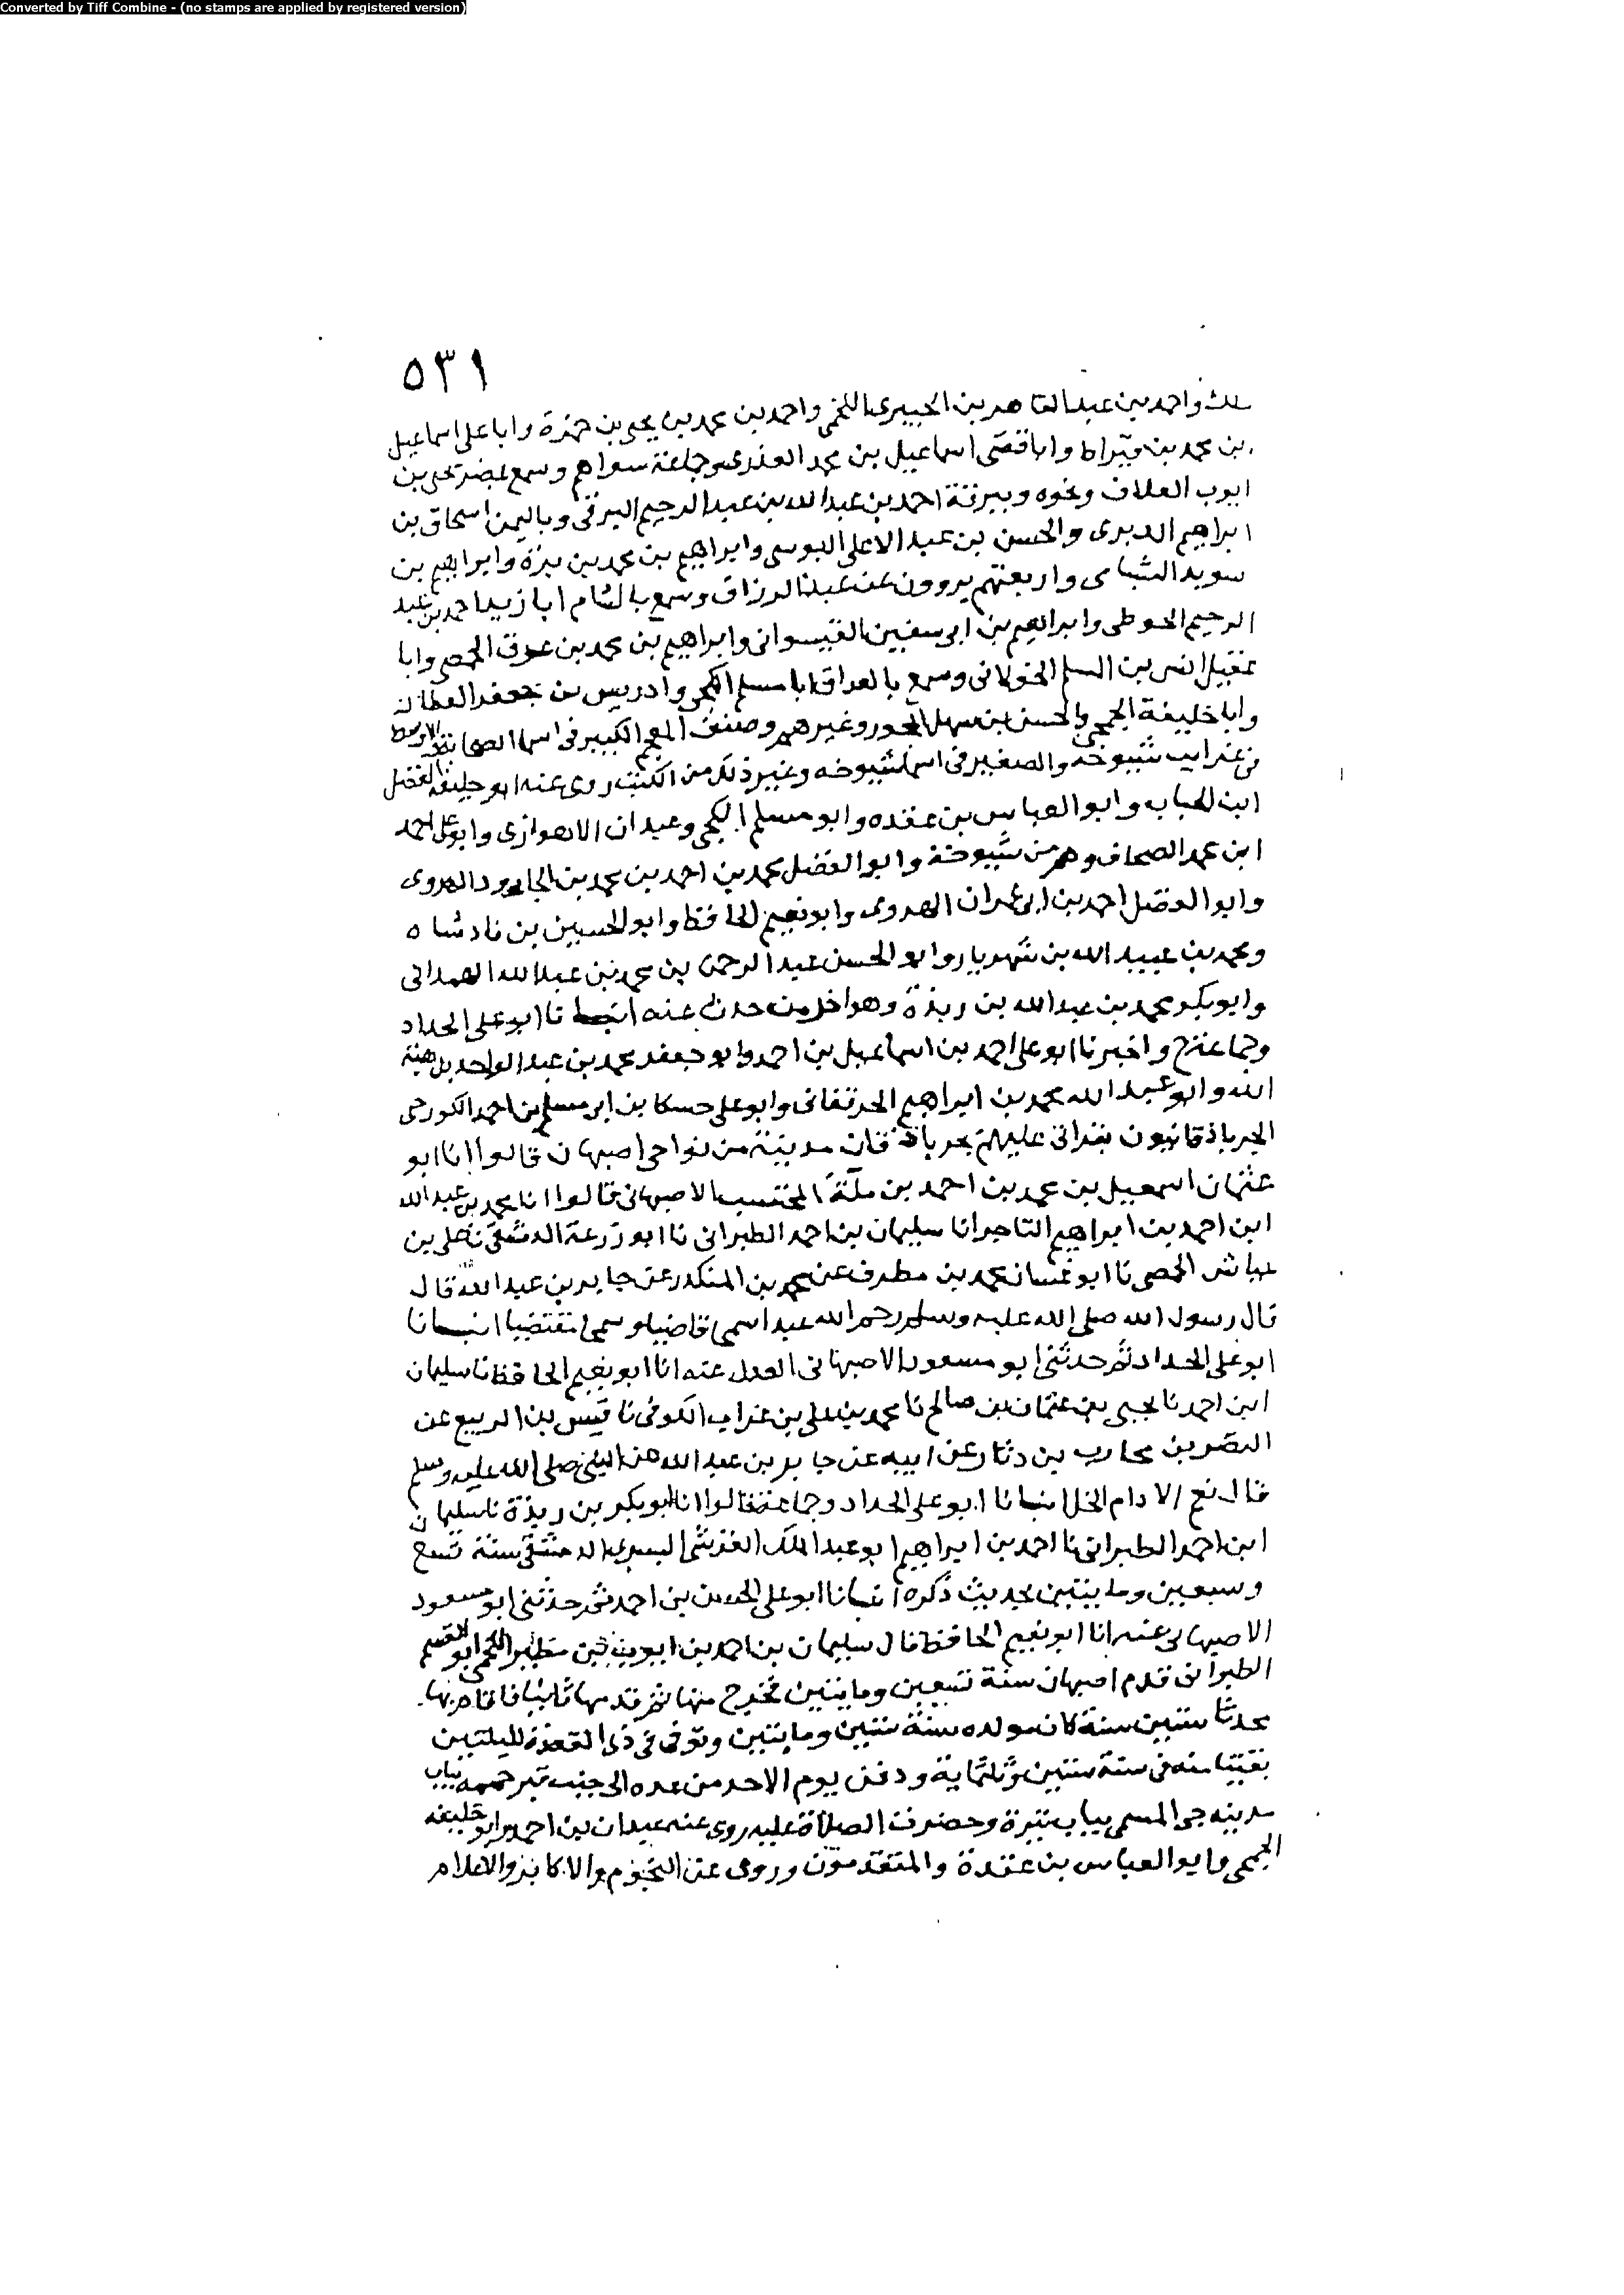 Converted by Tiff Combine - (no stamps are applied by registered version)
٥٣١
واحمد بن عبد القاهر بن الخيبرى اللخمى واحمد بن محمد بن يحيى بن حمزة وابا على اسماعيل
بن محمد بن قيراط وابا قصى اسماعيل بن محمد العذرى وجماعة سواهم وسمع بمصر يحيى بن
ايوب العلاف ونحوه وببرقة احمد بن عبد الله بن عبد الرحيم البرقى وباليمن اسحاق بن
ابراهيم الدبرى والحسن بن عبد الاعلى البوسى وابراهيم بن محمد بن برة وابراهيم بن
سويد الشبامى واربعتهم يروون عن عبد الرزاق وسمع بالشام ابا زيد احمد بن عبد
الرحيم الحوطى وابراهيم بن ابى سفين القيسرانى وابراهيم بن محمد بن عرق الحمصى وابا
عقيل انس بن السلم الخولانى وسمع بالعراق ابا مسلم الكجى وادريس بن جعفر العطار
وابا خليفة الجمحى والحسن بن سهل المجوز وغيرهم وصنف المعجم الكبير فى اسما الصحابة والاوسط
فى غرايب شيوخه والصغير فى اسما شيوخه وغير ذلك من الكتب روى عنه ابو خليفة الفضل
ابن الحباب وابو العباس بن عقده وابو مسلم الكجى وعبدان الاهوازى وابو على احمد
ابن محمد الصحاف وهم من شيوخه وابو الفضل محمد بن احمد بن محمد بن الجارود الهروى
وابو الفضل احمد بن ابى عمران الهروى وابو نعيم الحافظ وابو الحسين بن فادشاه
ومحمد بن عبيد الله بن شهريار وابو الحسن عبد الرحمن بن محمد بن عبد الله الهمدانى
وابو بكر محمد بن عبد الله بن ريذة وهو اخر من حدث عنه نا ابو على الحداد
وجماعة ح واخبرنا ابو على احمد بن اسماعيل بن احمد وابو جعفر محمد بن عبد الواحد بن هبة
الله وابو عبد الله محمد بن ابراهيم وابو على حسكا بن ابى مسلم بن احمد
بقراتى عليهم مدينة من نواحى اصبهان قالوا انا ابو
عثمان اسمعيل بن محمد بن احمد بن ملة المحتسب الاصبهانى قالوا انا محمد بن عبد الله
ابن احمد بن ابراهيم التاجر انا سليمان بن احمد الطبرانى نا ابو زرعة الدمشقى نا على بن
عياش الحمصى نا ابو غسان محمد بن مطرف عن محمد بن المنكدر عن جابر بن عبد الله قال
قال رسول الله صلى الله عليه وسلم رحم الله عبدا سمى قاضيا وسمى مقتضيا انبانا
ابو على الحداد ثم حدثنى ابو مسعود الاصبهانى العدل عنه انا ابو نعيم الحافظ نا سليمان
ابن احمد نا يحيى بن عثمان بن صالح نا محمد بن على بن غراب الكوفى نا قيس بن الربيع عن
النضر بن محارب بن دثار عن ابيه عن جابر بن عبد الله عن النبى صلى الله عليه وسلم
قال نعم الادام الخل انبانا ابو على الحداد وجماعة قالوا انا ابو بكر بن ريذة نا سليمان
ابن احمد الطبرانى نا احمد بن ابراهيم ابو عبد الملك القرشى البسرى الدمشقى سنة تسع
وسبعين وماىتىن بحديث ذكره انبانا ابو على الحسن بن احمد ثم حدثنى ابو مسعود
الاصبهانى عنه انا ابو نعيم الحافظ قال سليمان بن احمد بن ايوب بن مطير اللخمى ابو القسم
الطبرانى قدم اصبهان سنة تسعين ومايتين فخرج منها ثم قدمها ثانيا فاقام بها
محدثا ستين سنة كان مولده سنة ستين ومايتين وتوفى فى ذى القعدة لليلتين
بقيتا منه فى سنة ستين وثلثماية ودفن يوم الاحد من غده الى جنب قبر حممه بباب
مدينه جى المسمى بباب تيرة وحضرت الصلاة عليه روى عنه عبدان بن احمد وابو خليفه
الجمحى وابو العباس بن عقدة والمتقدمون وروى عن النجوم والاكابر والاعلام